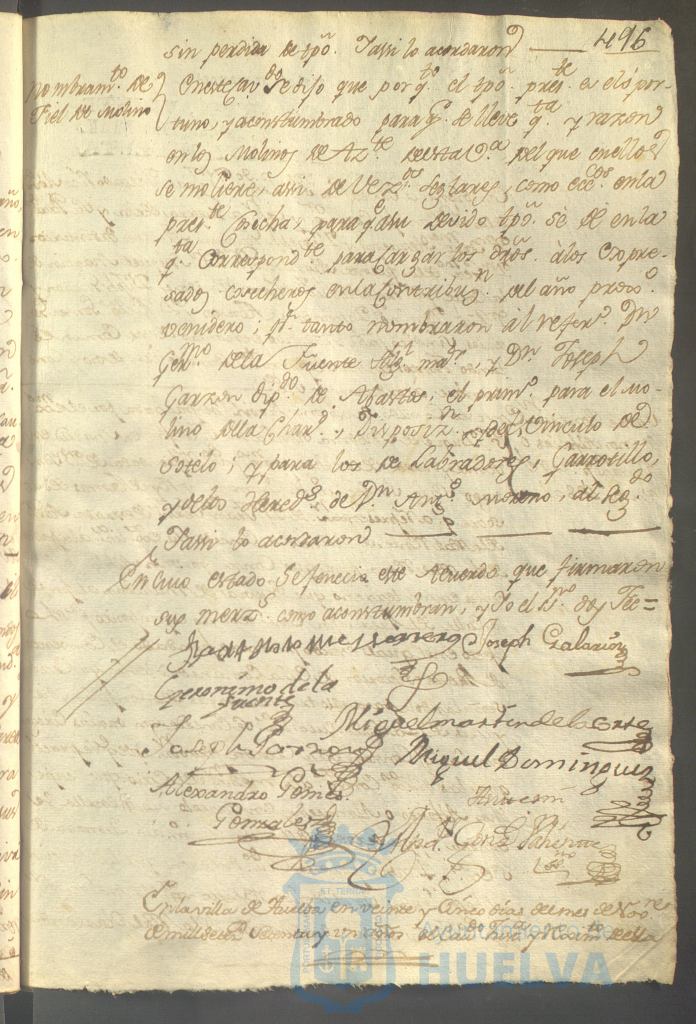 496
sin perdida de tpõ. Y assi lo acordaron
Nombram.to de
Fiel de Molino
En este Cav.do se dijo que por q.to el tpõ. pres.te es el opor-
tuno, y acostumbrado para q. se lleve q.ta y razon
en los Molinos de Az.te de esta V.a del que en ellos
se moliere, assi de Vez.os seglares, como ecc.cos en la
pres.te Cosecha, para q.e a su devido tpõ. se dé en la
q.ta correspond.te para cargar los dr̃os. a los expre-
sados cosecheros en la Contribuz.n del año prox.o
venidero; p.r tanto nombraron al refer.o Dn
Ger.mo de la Fuente Alg.l ma.r, y Dn. Joseph
Garzon Dip.do de Abastos, el prim.o para el Mo-
lino de la Char.d, y del Vinculo de
Sotelo; y para los de Labradores, Garrotillo,
y de los Hered.s de Dn. Ant.o Moreno, al seg.do
Y assi lo acordaron
En cuio estado se fenecio este Acuerdo que firmaron
sus merz.s como acostumbran, y Yo el Ss.no doy fee=
Joseph Galarion
Geronimo de la
Fuente
Miguel martin de la Corte
Joseph Garzon
Miguel Dominguez
Alexandro Gomes
Gonzalez
En la villa de Huelva en veinte y Cinco dias del mes de Nov.re
de mill setez.s
Ayuntamiento de
HUELVA